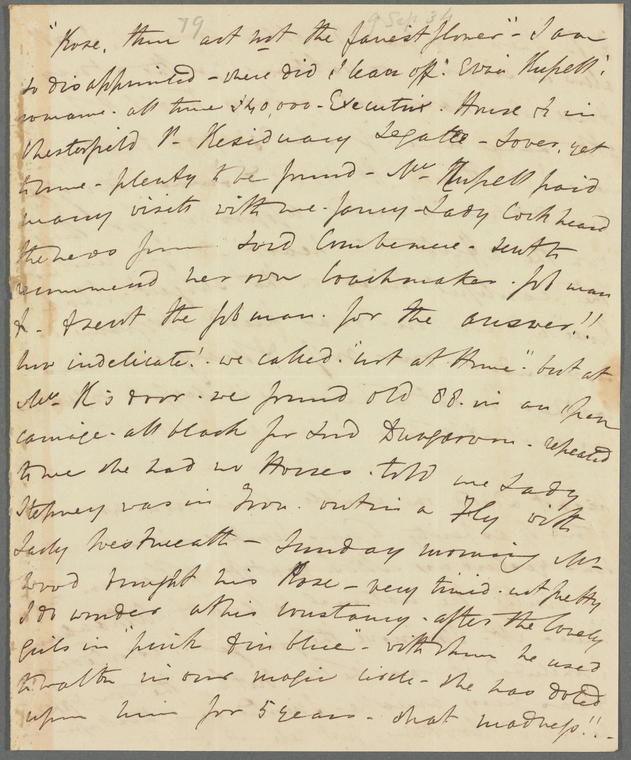 79 9 Sep 36
"Rose, thou art not the fairest flower" - I am
so disappointed - where did I leave off? Eliza Russell's
romance - all true £40,000 - Executrix. House &c in
Chesterfield St - Residuary Legatee - Lover, yet
to me - plenty to be found - Mrs Russell paid
many visits with me - fancy - Lady Cork heard
the news from Lord Combermere - sent to
recommend her own Coachmaker. Job man
& - & sent the Job man for the answer!!
how indelicate! we called. "not at Home" but at
Mrs K's door we found old 88. in an open
carriage. all black for Lord Dungarvon - repeated
to me she had no Horses. told me Lady
Stepney was in Town. out in a Fly with
Lady Westmeath - Sunday morning Mr
Wood brought his Rose - very timid. not pretty
I do wonder at his constancy. after the lovely
Girls in "pink & in blue" - with whom he used
to waltz in our magic circle - She has doted
upon him for 5 years - what madness!! -